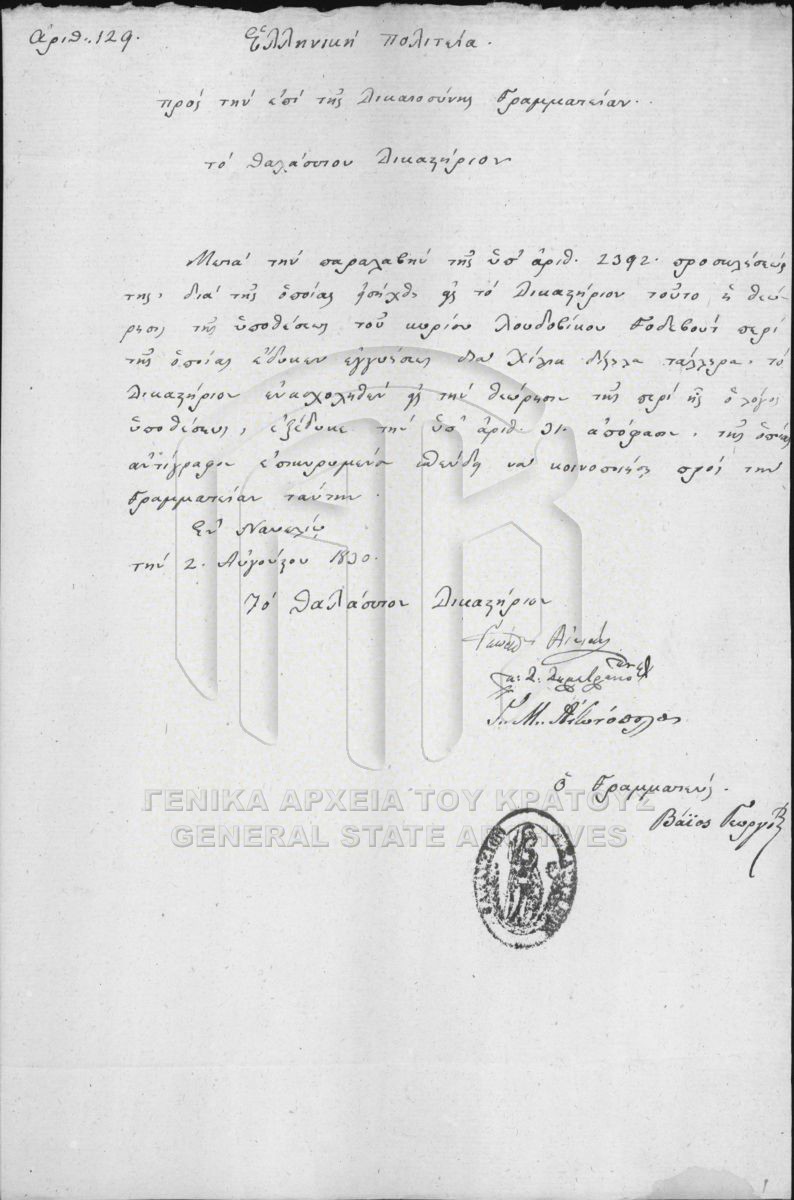 Ἀριθ. 129.
Ἑλληνική πολιτεία.
πρός τήν ἐπί τῆς Δικαιοσύνης Γραμματείαν.
τό θαλάσσιον Δικαστήριον
Μετά τήν παραλαβήν τῆς ὑπ' ἀριθ. 2392. προσκλήσεώς
της, διά τῆς ὁποίας εἰσήχθη εἰς τό Δικαστήριον τοῦτο ἡ θεώ-
ρησις τῆς ὑποθέσεως τοῦ κυρίου Λουδοβίκου Γοδεβούτ περί
τῆς ὁποίας ἔδωκεν ἐγγυήσεις διά χίλια δίστηλα τάλληρα. τό
Δικαστήριον ἐνασχοληθέν εἰς τήν θεώρησιν τῆς περί ἧς ὁ λόγος
ὑποθέσεως, ἐξέδωκε τήν ὑπ' ἀριθ. 31. ἀπόφασιν, τῆς ὁποίας
ἀντίγραφον ἐπικυρωμένον σπεύδει νά κοινοποιήσῃ πρός τήν
Γραμματείαν ταύτην.
Ἐν Ναυπλίῳ
τήν 2. Αὐγούστου 1830.
Τό θαλάσσιον Δικαστήριον
Γ. Μ. Ἀντωνόπουλος
ὁ Γραμματεύς.
Βάϊος Γεωργίου
ΓΕΝΙΚΑ ΑΡΧΕΙΑ ΤΟΥ ΚΡΑΤΟΥΣ
GENERAL STATE ARCHIVES